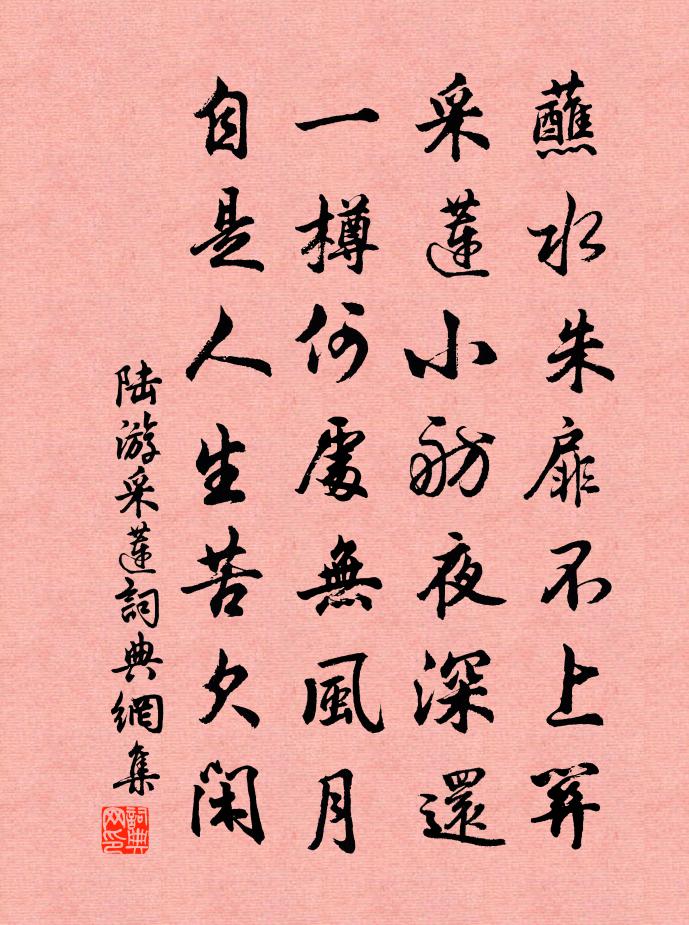 蘸水朱扉不上關
采蓮小舫夜深還
一樽何處無風月
自是人生苦欠閑
陆游采蓮詞典網集
詞典网印